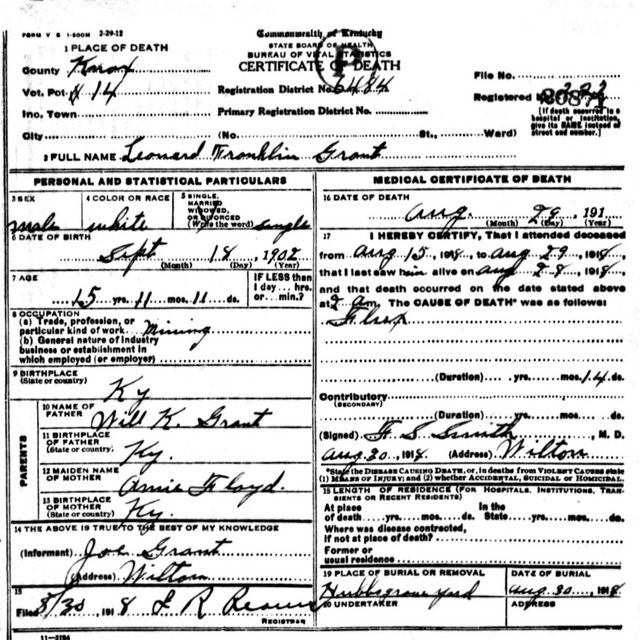 FORM V S 1-500M 2-29-12
Commonwealth of Kentucky
STATE BOARD OF HEALTH
BUREAU OF VITAL STATISTICS
CERTIFICATE OF DEATH
1 PLACE OF DEATH
County Knox
Vot. Pct. 14
Registration District No. 6484
File No.
Inc. Town
Primary Registration District No.
Registered
[If death occurred in a hospital or institution, give its NAME instead of street and number.]
City (No. St., Ward)
2 FULL NAME Leonard Franklin Grant
PERSONAL AND STATISTICAL PARTICULARS
3 SEX
male
4 COLOR OR RACE
white
5 SINGLE, MARRIED WIDOWED, OR DIVORCED
(Write the word) single
6 DATE OF BIRTH
Sept 18, 1902
(Month) (Day) (Year)
7 AGE
15 yrs. 11 mos. 11 ds.
IF LESS than
1 day... hrs.
or... min.?
8 OCCUPATION
(a) Trade, profession, or
particular kind of work Mining
(b) General nature of industry
business or establishment in
which employed (or employer)
9 BIRTHPLACE
(State or country) Ky
PARENTS
10 NAME OF FATHER Will K. Grant
11 BIRTHPLACE OF FATHER
(State or country) Ky.
12 MAIDEN NAME OF MOTHER Amie Floyd.
13 BIRTHPLACE OF MOTHER
(State or country) Ky.
14 THE ABOVE IS TRUE TO THE BEST OF MY KNOWLEDGE
(Informant) Joe Grant
(Address) Wilton
15
Filed 8/30, 1918 REGISTRAR
11-3184
MEDICAL CERTIFICATE OF DEATH
16 DATE OF DEATH
Aug. 29, 191
(Month) (Day) (Year)
17 I HEREBY CERTIFY, That I attended deceased
from Aug 15, 1918, to Aug 29, 1918,
that I last saw him alive on Aug 28, 1918,
and that death occurred on the date stated above
at 2 am. The CAUSE OF DEATH* was as follows:
(Duration) yrs. mos. 14 ds.
Contributory
(SECONDARY)
(Duration) yrs. mos. ds.
(Signed) F S Smith, M. D.
Aug 30, 1918. (Address) Wilton
*State the DISEASE CAUSING DEATH, or, in deaths from VIOLENT CAUSES state
(1) MEANS OF INJURY; and (2) whether ACCIDENTAL, SUICIDAL or HOMICIDAL.
18 LENGTH OF RESIDENCE (FOR HOSPITALS, INSTITUTIONS, TRANSIENTS OR RECENT RESIDENTS)
At place of death yrs. mos. ds.
In the State yrs. mos. ds.
Where was disease contracted,
if not at place of death?
Former or
usual residence
19 PLACE OF BURIAL OR REMOVAL
Hubbsgrave yard
DATE OF BURIAL
Aug. 30, 1918
20 UNDERTAKER
ADDRESS